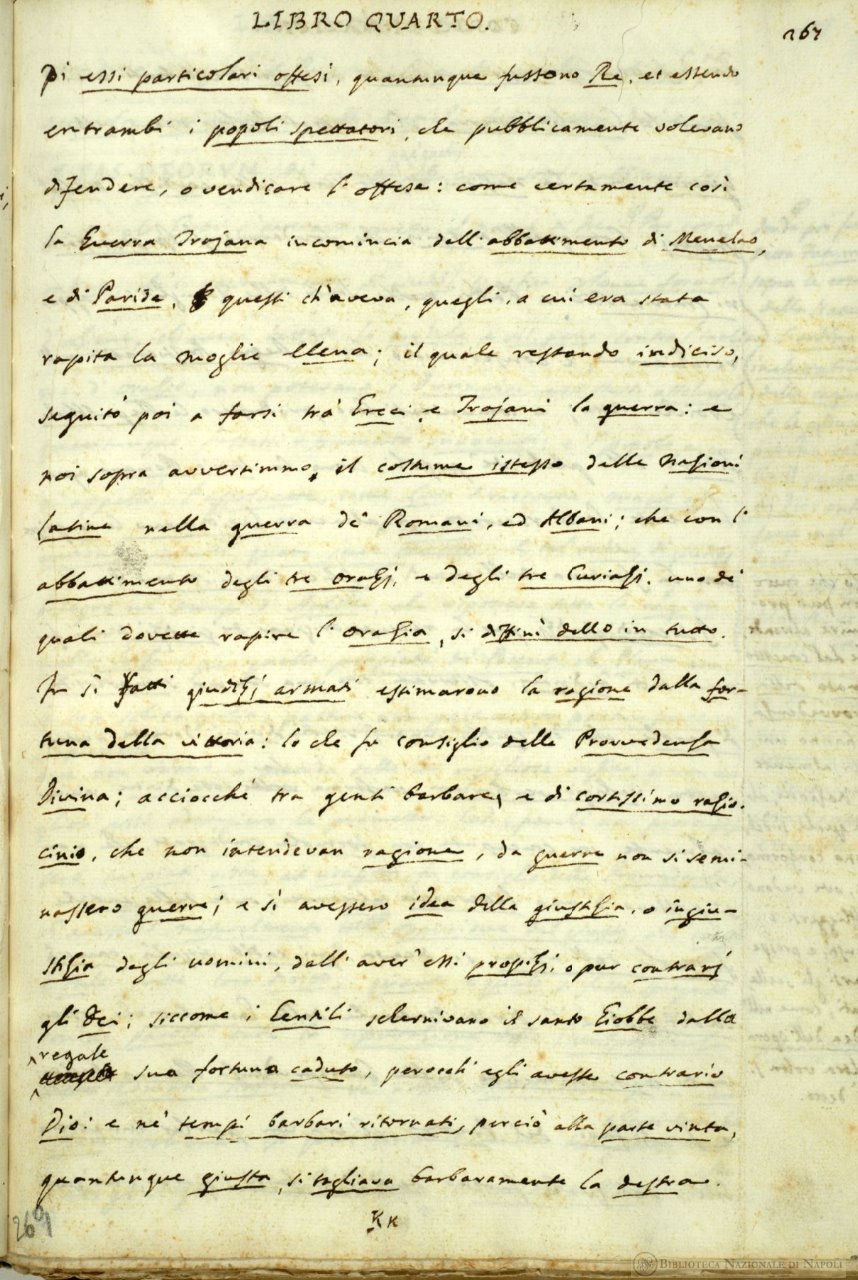 LIBRO QUARTO.
267
Di essi particolari offesi, quantunque fussono Re, et essendo
entrambi i popoli spettatori, che pubblicamente volevano
difendere, o vendicare l'offese: come certamente così
la Guerra Trojana incomincia dall'abbattimento di Menelao,
e di Paride, questi ch'aveva, quegli, a cui era stata
rapita la moglie Elena; il quale restando indiciso,
seguitò poi a farsi trà Greci, e Trojani la guerra: e
noi sopra avvertimmo, il costume istesso delle Nazioni
Latine nella guerra de' Romani, ed Albani; che con l'
abbattimento degli tre Orazj, e degli tre Curiazj, uno de'
quali dovette rapire l'Orazia, si diffinì dello in tutto.
In sì fatti giudizj armati estimarono la ragione dalla for-
tuna della vittoria: lo che fu consiglio della Provvedenza
Divina; acciocchè tra genti barbare, e di cortissimo razio-
cinio, che non intendevan ragione, da guerre non si semi-
nassero guerre; e sì avessero idea della giustizia, o ingiu-
stizia degli uomini, dall'aver'essi propizj, o pur contrarj
gli Dei; siccome i Gentili schernivano il santo Giobbe dalla
regale
sua fortuna caduto, perocch' egli avesse contrario
Dio: e ne' tempi barbari ritornati, perciò alla parte vinta,
quantunque giusta, si tagliava barbaramente la destra.
Kk
269
BIBLIOTECA NAZIONALE DI NAPOLI